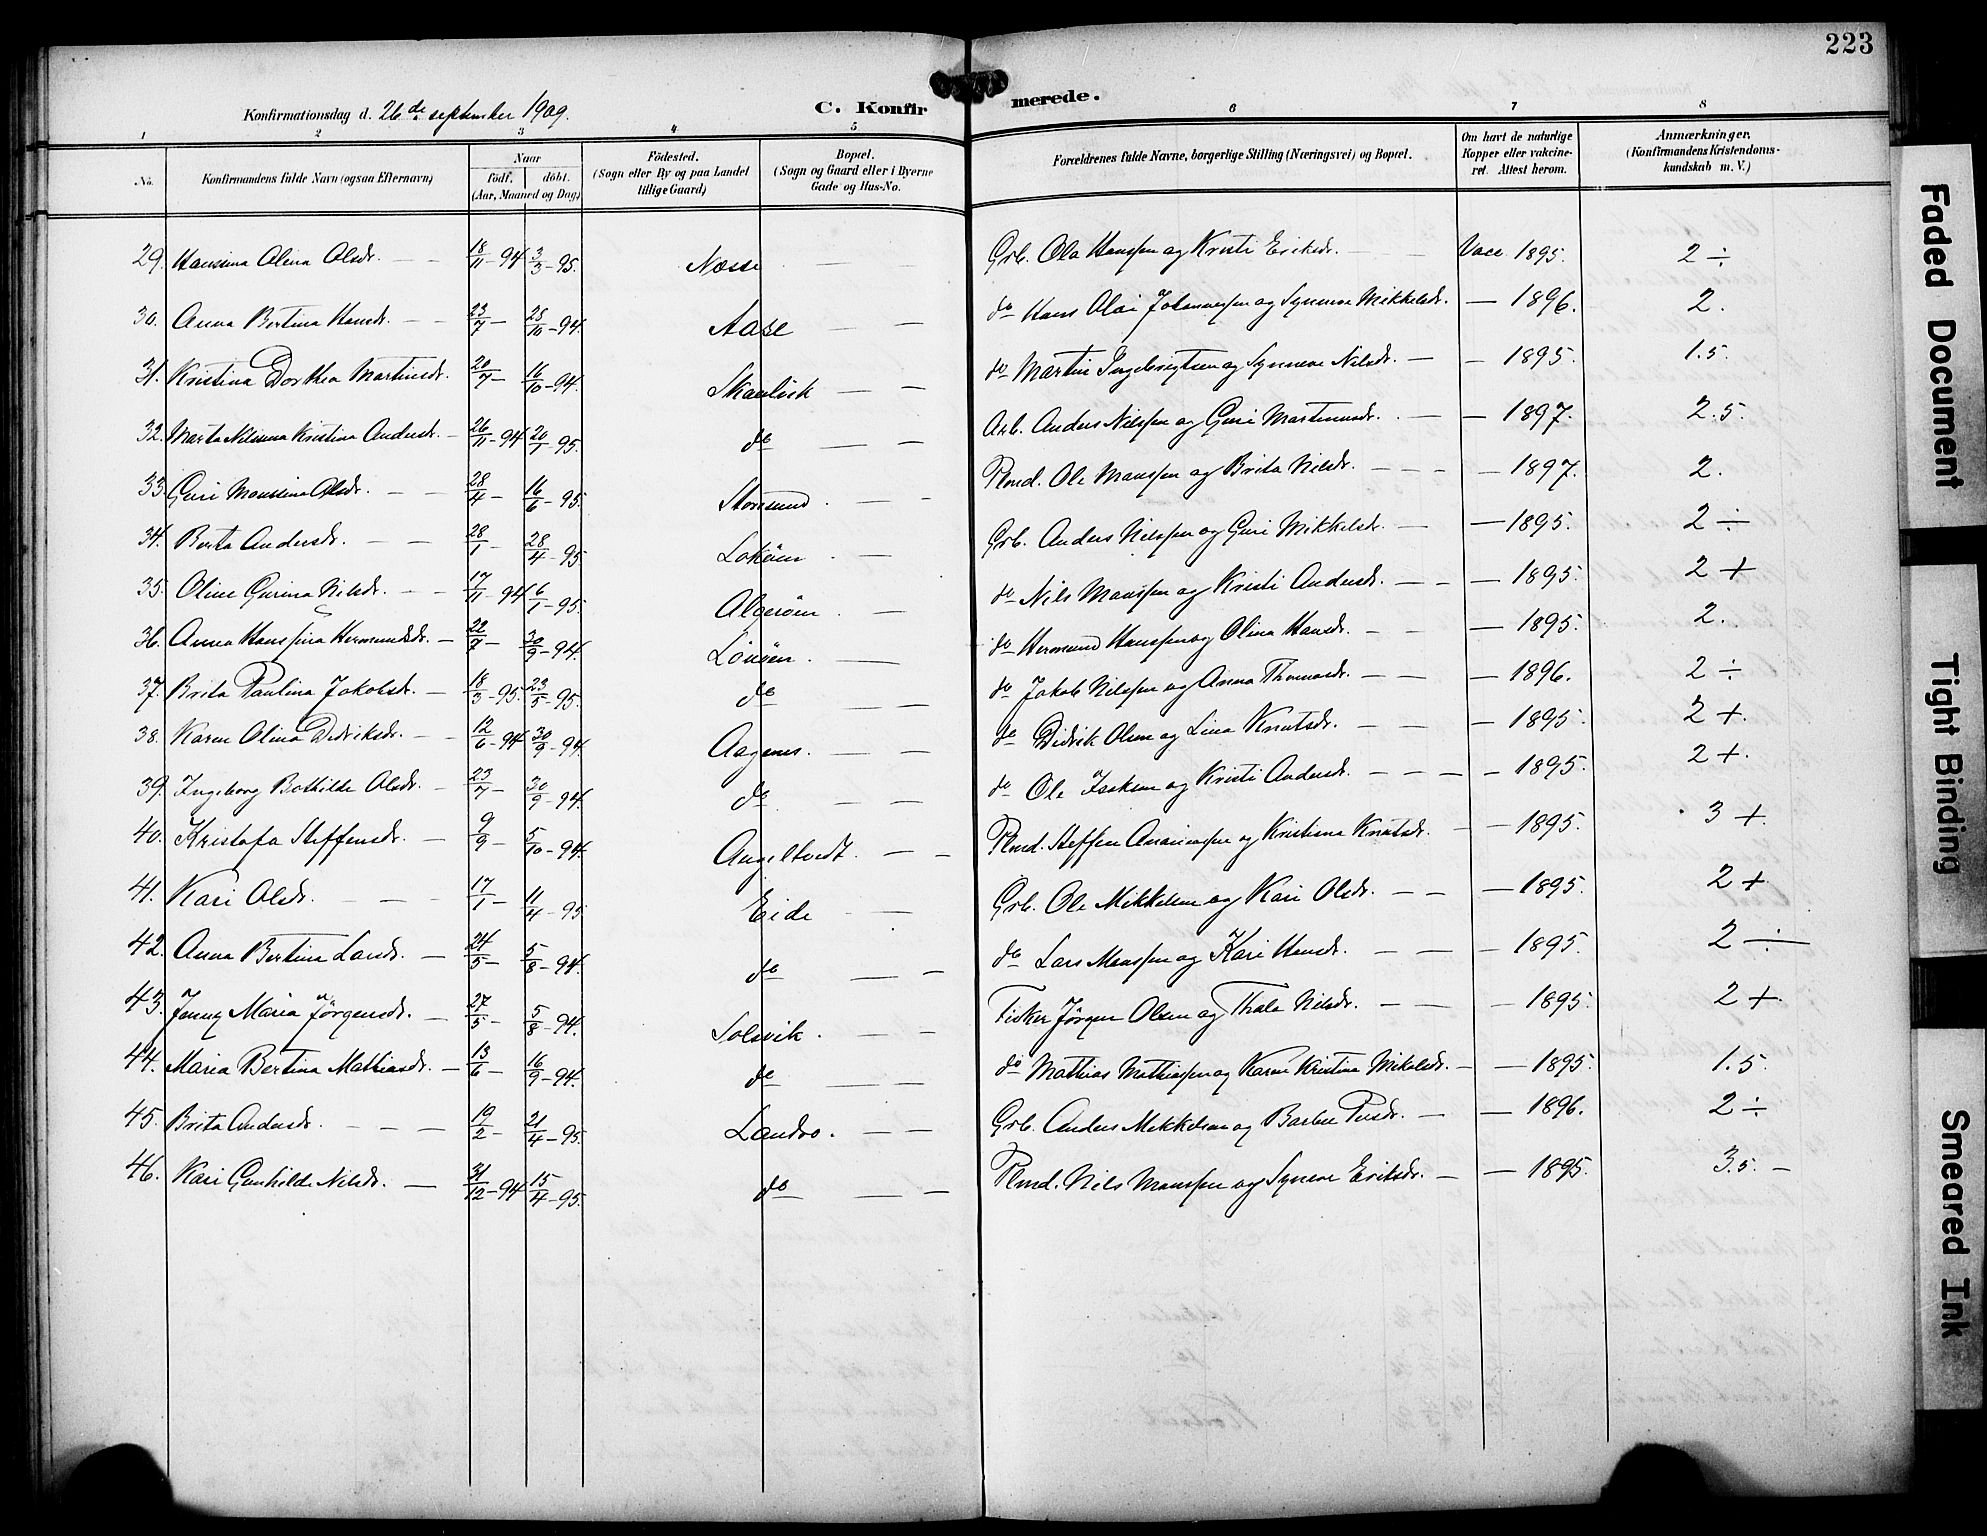 223
Konfirmationsdag d. 26de september 1909.
C. Konfirmerede.
1 2 3 4 5 6 7 8
No. Konfirmandens fulde Navn (ogsaa Efternavn) Naar født. døbt. (Aar, Maaned og Dag) Fødested. (Sogn eller By og paa Landet tillige Gaard) Bopæl. (Sogn og Gaard eller i Byerne Gade og Hus-No. Forældrenes fulde Navne, borgerlige Stilling (Næringsvei) og Bopæl. Om havt de naturlige Kopper eller vakcineret. Attest herom. Anmærkninger. (Konfirmandens Kristendomskundskab m. V.)
29. Hansina Olina Olsdr. — — 18/11-94 3/3-95. Næsse — Grb. Ola Hanssen og Kristi Eriksdr. — — Vacc 1895. 2 ÷
30. Anna Bertina Hansdr. — — 23/7 — 28/10-94. Aase — — do Hans Olai Johannessen og Synneve Mikkelsdr. — 1896. 2.
31. Kristina Dorthea Martinsdr. 20/7 — 16/10-94. Skaalvik — — do Martin Ingebrigtsen og Synneve Nilsdr. — — 1895. 1.5.
32. Marta Nilsina Kristina Andersdr. — 26/11-94 20/1-95. do — — Arb. Anders Nilssen og Guri Martinusdr. — — 1897. 2.5.
33. Guri Monssina Olsdr. — — 28/4 — 16/6-95. Storesund — — Plmd. Ole Monssen og Brita Nilsdr. — — — — 1897. 2.
34. Berta Andersdr. — — 28/1 — 28/4-95. Lokøen — — Grb. Anders Nilssen og Guri Mikkelsdr. — — 1895. 2 ÷
35. Oline Gurina Nilsdr. — — 17/11-94 6/1-95. Algerøen — do Nils Monssen og Kristi Andersdr. — — — 1895. 2 +
36. Anna Hanssina Hermundsdr. — 22/7 — 30/9-94. Lønøen. — do Hermund Hanssen og Olina Hansdr. — — — 1895. 2.
37. Brita Paulina Jakobsdr. — 18/3-95. 23/5-95. do — — do Jakob Nilssen og Anna Thomasdr. — — — 1896. 2 ÷
38. Karen Olina Didriksdr. — — 12/6-94 30/9-94. Aagenes. — — do Didrik Olsen og Lina Knutsdr. — — — 1895. 2 +.
39. Ingeborg Bothilde Olsdr. — 23/7 — 30/9-94. do — — do Ole Isaksen og Kristi Andersdr. — — — — 1895. 2 +.
40. Kristofa Steffensdr. — 9/9 — 5/10-94. Angeltvedt. — — Plmd. Steffen Ananiassen og Kristiana Knutsdr. — — 1895. 3 +.
41. Kari Olsdr. — — — 17/1 — 11/4-95 Eide — — Grb. Ole Mikkelsen og Kari Olsdr. — — — 1895. 2 +
42. Anna Bertina Larsdr. — 24/5 — 5/8-94. do — — do Lars Monssen og Kari Hansdr. — — — 1895. 2 ÷
43. Jenny Maria Jørgensdr. — 27/5 — 5/8-94. Solsvik. — — Fisker Jørgen Olsen og Thala Nilsdr. — — — 1895. 2 +
44. Maria Bertina Mathiasdr. — 13/6 — 16/9-94. do — — do Mathias Mathiassen og Karen Kristina Mikalsdr. — — 1895. 1.5.
45. Brita Andersdr. — — — 19/2 — 21/4-95. Landro. — — Grb. Anders Mikkelsen og Barbra Persdr. — — 1896. 2 ÷
46. Kari Gunhilde Nilsdr. — 31/12-94 15/4-95. do — — Plmd. Nils Monssen og Synneve Eriksdr. — — 1895. 3.5. —
Faded Document
Tight Binding
Smeared Ink